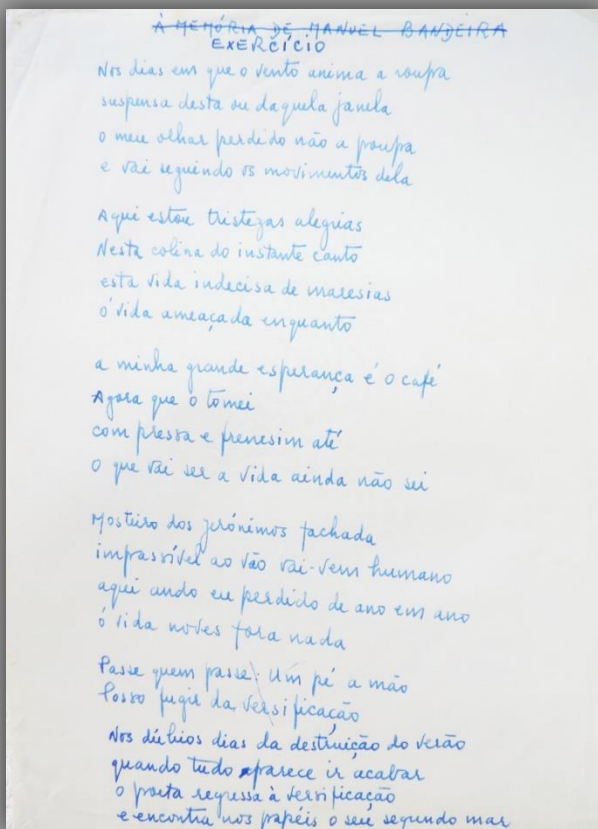 À MEMÓRIA DE MANUEL BANDEIRA
EXERCÍCIO
Nos dias em que o vento anima a roupa
suspensa desta ou daquela janela
o meu olhar perdido não a poupa
e vai seguindo os movimentos dela
Aqui estou tristezas alegrias
Nesta colina do instante canto
esta vida indecisa de maresias
ó vida ameaçada enquanto
a minha grande esperança é o café
Agora que o tomei
com pressa e frenesim até
O que vai ser a vida ainda não sei
Mosteiro dos jerónimos fachada
impassível ao vão vai-vem humano
aqui ando eu perdido de ano em ano
ó vida noves fora nada
Passe quem passe. Um pé a mão
Posso fugir da versificação
Nos dúbios dias da destruição do verão
quando tudo parece ir acabar
o poeta regressa à versificação
e encontra nos papéis o seu segundo mar